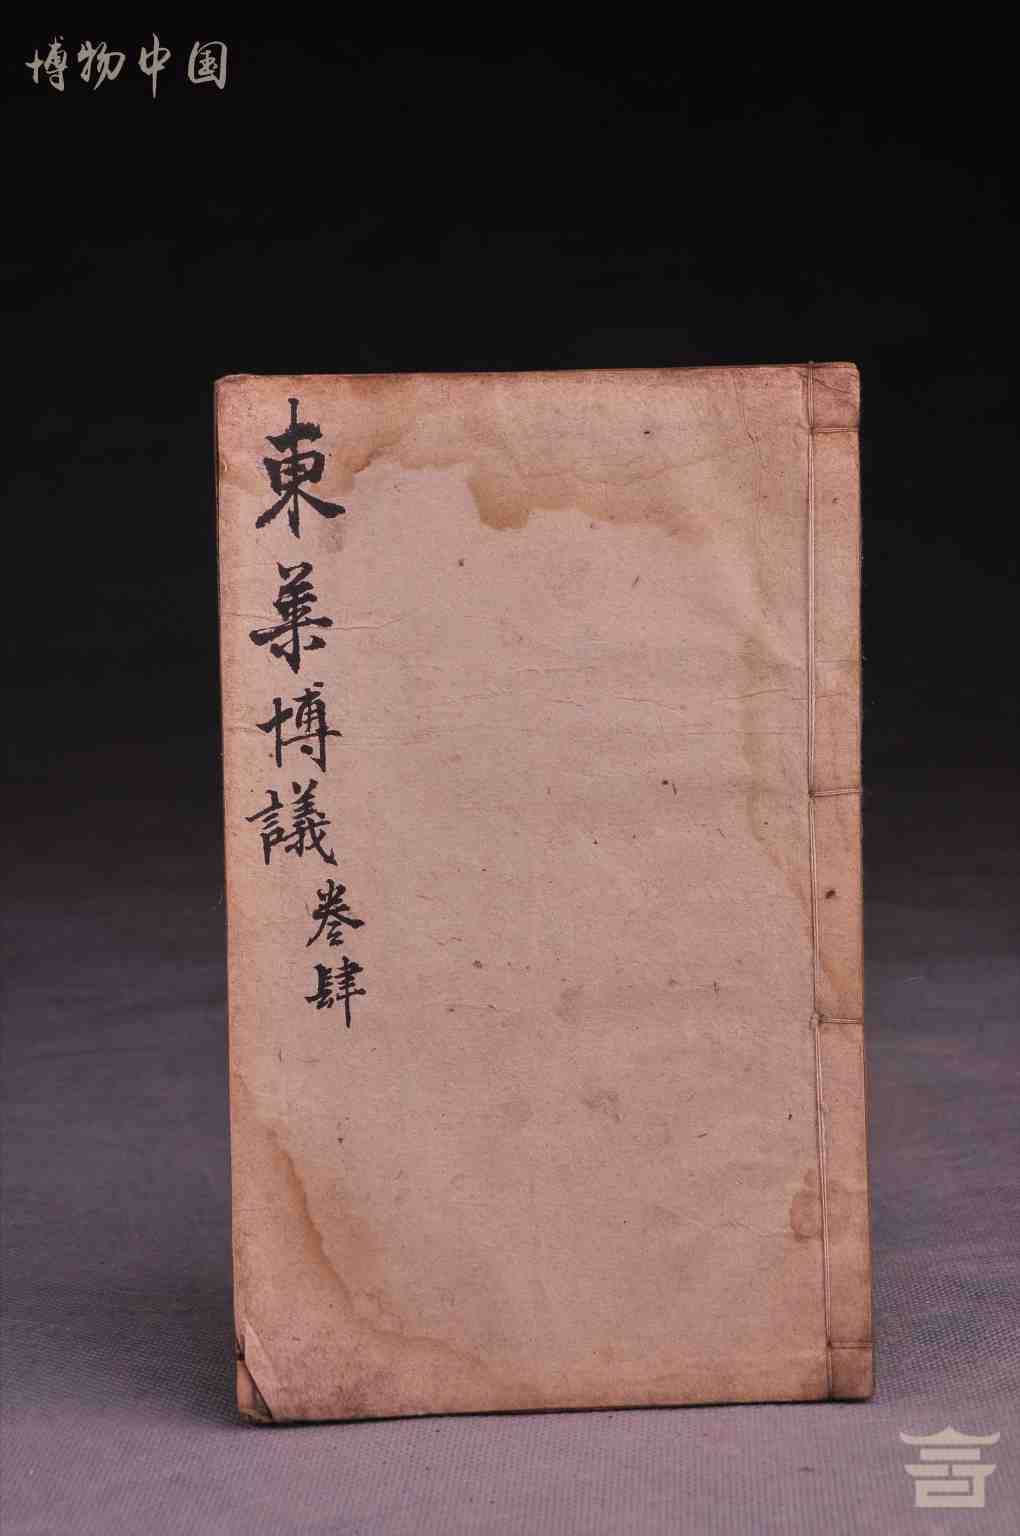 博物中国
東萊博議
卷肆